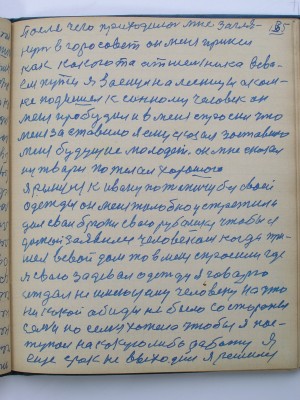 после чего приходилось мне загля- 35
нуть в горсовет он меня принял
как какого то отшельника
я заснул на лестницы а кон-
подошел к сонному человек он
меня пробудил и в меня спросил что
меня заставило я ему сказал заставило
меня будущие молодой. он мне сказал
ну твари по желал хорошего
я пришел к ивану по жене чубу своей
одежды он меня
дал свои брюки свою рубашку чтобы я
домой заявился человеком когда при-
шел в свой дом то в меня спросили где
я свою задевал одежду я говорю
отдал не имеющему человеку на это
ни какой обиды не было со стороны
семи но семи хотела чтобы я пос-
тупал на какую либо работу я
еще срок не выходил я решил